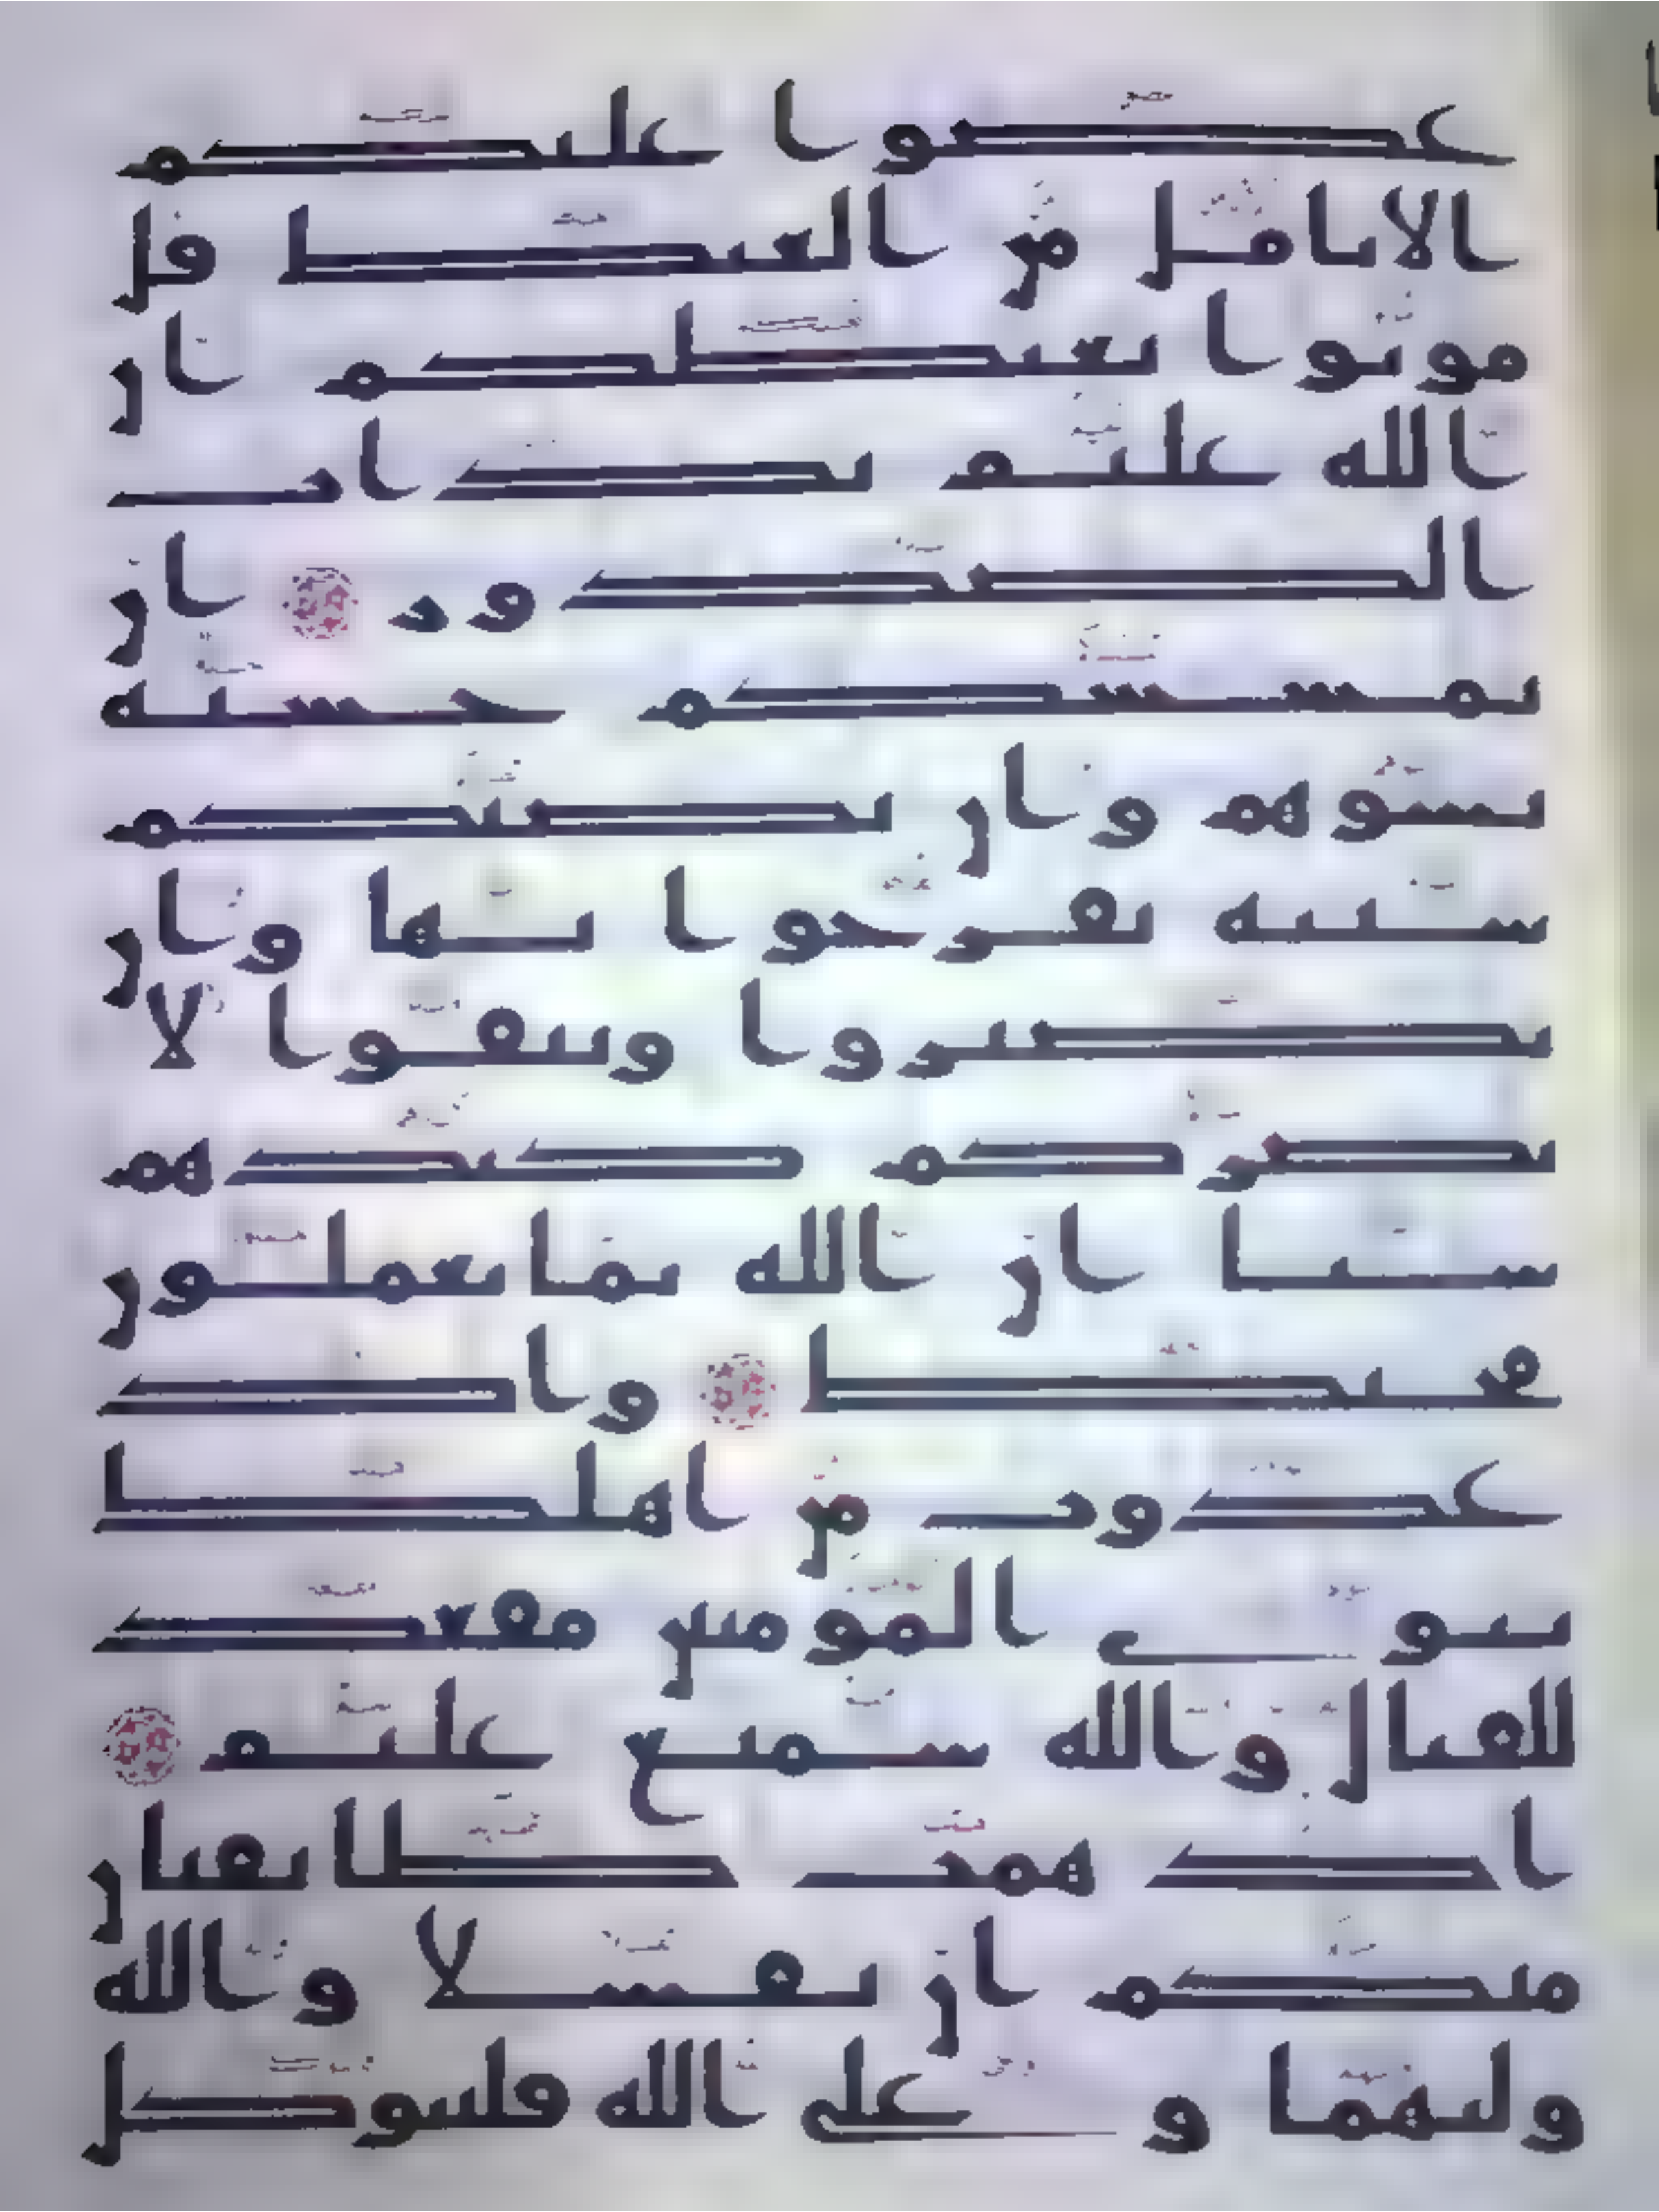 عضوا عليكم
الانامل من الغيظ قل
موتوا بغيظكم ان
الله عليم بذات
الصدور ان
تمسسكم حسنة
تسوهم وان تصبكم
سيئة يفرحوا بها وان
تصبروا وتتقوا لا
يضركم كيدهم
شيا ان الله بما يعملون
محيط واذ
غدوت من اهلك
تبوى المومنين مقعد
للقتال والله سميع عليم
اذ همت طايفتان
منكم ان تفشلا والله
وليهما و على الله فليتوكل